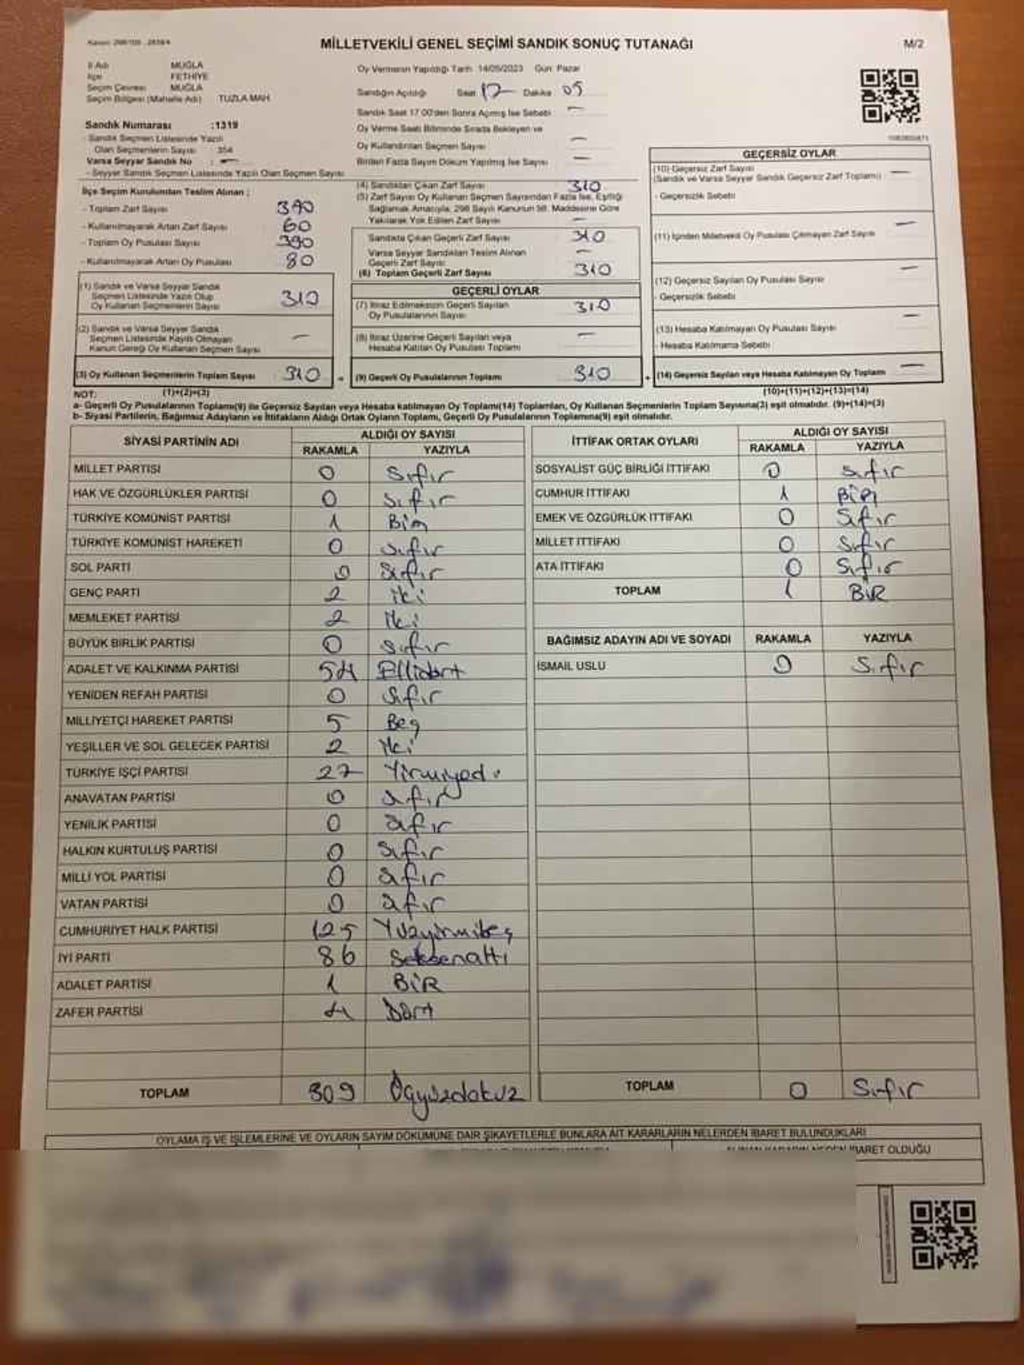 MİLLETVEKİLİ GENEL SEÇİMİ SANDIK SONUÇ TUTANAĞI
M/2
İl Adı MUĞLA
İlçe FETHİYE
Seçim Çevresi MUĞLA
Seçim Bölgesi (Mahalle Adı) TUZLA MAH
Sandık Numarası :1319
- Sandık Seçmen Listesinde Yazılı
Olan Seçmenlerin Sayısı : 354
Varsa Seyyar Sandık No : —
- Seyyar Sandık Seçmen Listesinde Yazılı Olan Seçmen Sayısı
Oy Vermenin Yapıldığı Tarih 14/05/2023 Gün: Pazar
Sandığın Açıldığı Saat 17 Dakika 05
Sandık Saat 17:00'den Sonra Açılmış İse Sebebi —
Oy Verme Saati Bitiminde Sırada Bekleyen ve
Oy Kullandırılan Seçmen Sayısı —
Birden Fazla Sayım Döküm Yapılmış İse Sayısı —
İlçe Seçim Kurulundan Teslim Alınan ;
- Toplam Zarf Sayısı 390
- Kullanılmayarak Artan Zarf Sayısı 60
- Toplam Oy Pusulası Sayısı 390
- Kullanılmayarak Artan Oy Pusulası 80
(1) Sandık ve Varsa Seyyar Sandık
Seçmen Listesinde Yazılı Olup
Oy Kullanan Seçmenlerin Sayısı 310
(2) Sandık ve Varsa Seyyar Sandık
Seçmen Listesinde Kayıtlı Olmayan
Kanun Gereği Oy Kullanan Seçmen Sayısı —
(3) Oy Kullanan Seçmenlerin Toplam Sayısı 310
(1)+(2)=(3)
(4) Sandıktan Çıkan Zarf Sayısı 310
(5) Zarf Sayısı Oy Kullanan Seçmen Sayısından Fazla İse, Eşitliği
Sağlamak Amacıyla, 298 Sayılı Kanunun 98. Maddesine Göre
Yakılarak Yok Edilen Zarf Sayısı —
Sandıkta Çıkan Geçerli Zarf Sayısı 310
Varsa Seyyar Sandıktan Teslim Alınan
Geçerli Zarf Sayısı —
(6) Toplam Geçerli Zarf Sayısı 310
GEÇERLİ OYLAR
(7) İtiraz Edilmeksizin Geçerli Sayılan
Oy Pusulalarının Sayısı 310
(8) İtiraz Üzerine Geçerli Sayılan veya
Hesaba Katılan Oy Pusulası Toplamı —
(9) Geçerli Oy Pusulalarının Toplamı 310
GEÇERSİZ OYLAR
(10) Geçersiz Zarf Sayısı
(Sandık ve Varsa Seyyar Sandık Geçersiz Zarf Toplamı) —
- Geçersizlik Sebebi
(11) İçinden Milletvekili Oy Pusulası Çıkmayan Zarf Sayısı —
(12) Geçersiz Sayılan Oy Pusulası Sayısı —
- Geçersizlik Sebebi
(13) Hesaba Katılmayan Oy Pusulası Sayısı —
- Hesaba Katılmama Sebebi
(14) Geçersiz Sayılan veya Hesaba Katılmayan Oy Toplamı —
(10)+(11)+(12)+(13)=(14)
NOT:
a- Geçerli Oy Pusulalarının Toplamı(9) ile Geçersiz Sayılan veya Hesaba katılmayan Oy Toplamı(14) Toplamları, Oy Kullanan Seçmenlerin Toplam Sayısına(3) eşit olmalıdır. (9)+(14)=(3)
b- Siyasi Partilerin, Bağımsız Adayların ve İttifakların Aldığı Ortak Oyların Toplamı, Geçerli Oy Pusulalarının Toplamına(9) eşit olmalıdır.
SİYASİ PARTİNİN ADI ALDIĞI OY SAYISI
RAKAMLA YAZIYLA
MİLLET PARTİSİ 0 Sıfır
HAK VE ÖZGÜRLÜKLER PARTİSİ 0 Sıfır
TÜRKİYE KOMÜNİST PARTİSİ 1 Bir
TÜRKİYE KOMÜNİST HAREKETİ 0 Sıfır
SOL PARTİ 0 Sıfır
GENÇ PARTİ 2 İki
MEMLEKET PARTİSİ 2 İki
BÜYÜK BİRLİK PARTİSİ 0 Sıfır
ADALET VE KALKINMA PARTİSİ 54 Ellidört
YENİDEN REFAH PARTİSİ 0 Sıfır
MİLLİYETÇİ HAREKET PARTİSİ 5 Beş
YEŞİLLER VE SOL GELECEK PARTİSİ 2 İki
TÜRKİYE İŞÇİ PARTİSİ 27 Yirmiyedi
ANAVATAN PARTİSİ 0 Sıfır
YENİLİK PARTİSİ 0 Sıfır
HALKIN KURTULUŞ PARTİSİ 0 Sıfır
MİLLİ YOL PARTİSİ 0 Sıfır
VATAN PARTİSİ 0 Sıfır
CUMHURİYET HALK PARTİSİ 125 Yüzyirmibeş
İYİ PARTİ 86 Seksenaltı
ADALET PARTİSİ 1 BİR
ZAFER PARTİSİ 4 Dört
TOPLAM 309 Üçyüzdokuz
İTTİFAK ORTAK OYLARI ALDIĞI OY SAYISI
RAKAMLA YAZIYLA
SOSYALİST GÜÇ BİRLİĞİ İTTİFAKI 0 Sıfır
CUMHUR İTTİFAKI 1 BİR
EMEK VE ÖZGÜRLÜK İTTİFAKI 0 Sıfır
MİLLET İTTİFAKI 0 Sıfır
ATA İTTİFAKI 0 Sıfır
TOPLAM 1 BİR
BAĞIMSIZ ADAYIN ADI VE SOYADI RAKAMLA YAZIYLA
İSMAİL USLU 0 Sıfır
TOPLAM 0 Sıfır
OYLAMA İŞ VE İŞLEMLERİNE VE OYLARIN SAYIM DÖKÜMÜNE DAİR ŞİKAYETLERLE BUNLARA AİT KARARLARIN NELERDEN İBARET BULUNDUKLARI